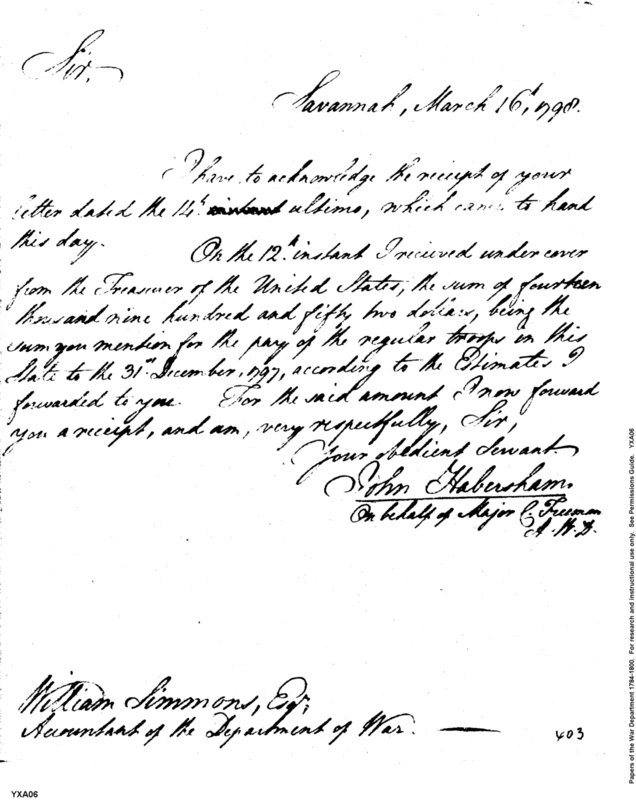 Sir,
Savannah, March 16th, 1798.
I have to acknowledge the receipt of your
letter dated the 14th. instant ultimo, which came to hand
this day. On the 12th. instant I received under cover
from the Treasurer of the United States, the sum of fourteen
thousand nine hundred and fifty two dollars, being the
sum you mention for the pay of the regular troops in this
State to the 31st December, 1797, according to the Estimates I
forwarded to you. For the said amount I now forward
you a receipt, and am, very respectfully, Sir,
Your obedient Servant
John Habersham.
On behalf of Major C. Freeman
A. W. D.
William Simmons, Esqr.
Accountant of the Department of War.
403
YXA06
Papers of the War Department 1784-1800. For research and instructional use only. See Permissions Guide. YXA06